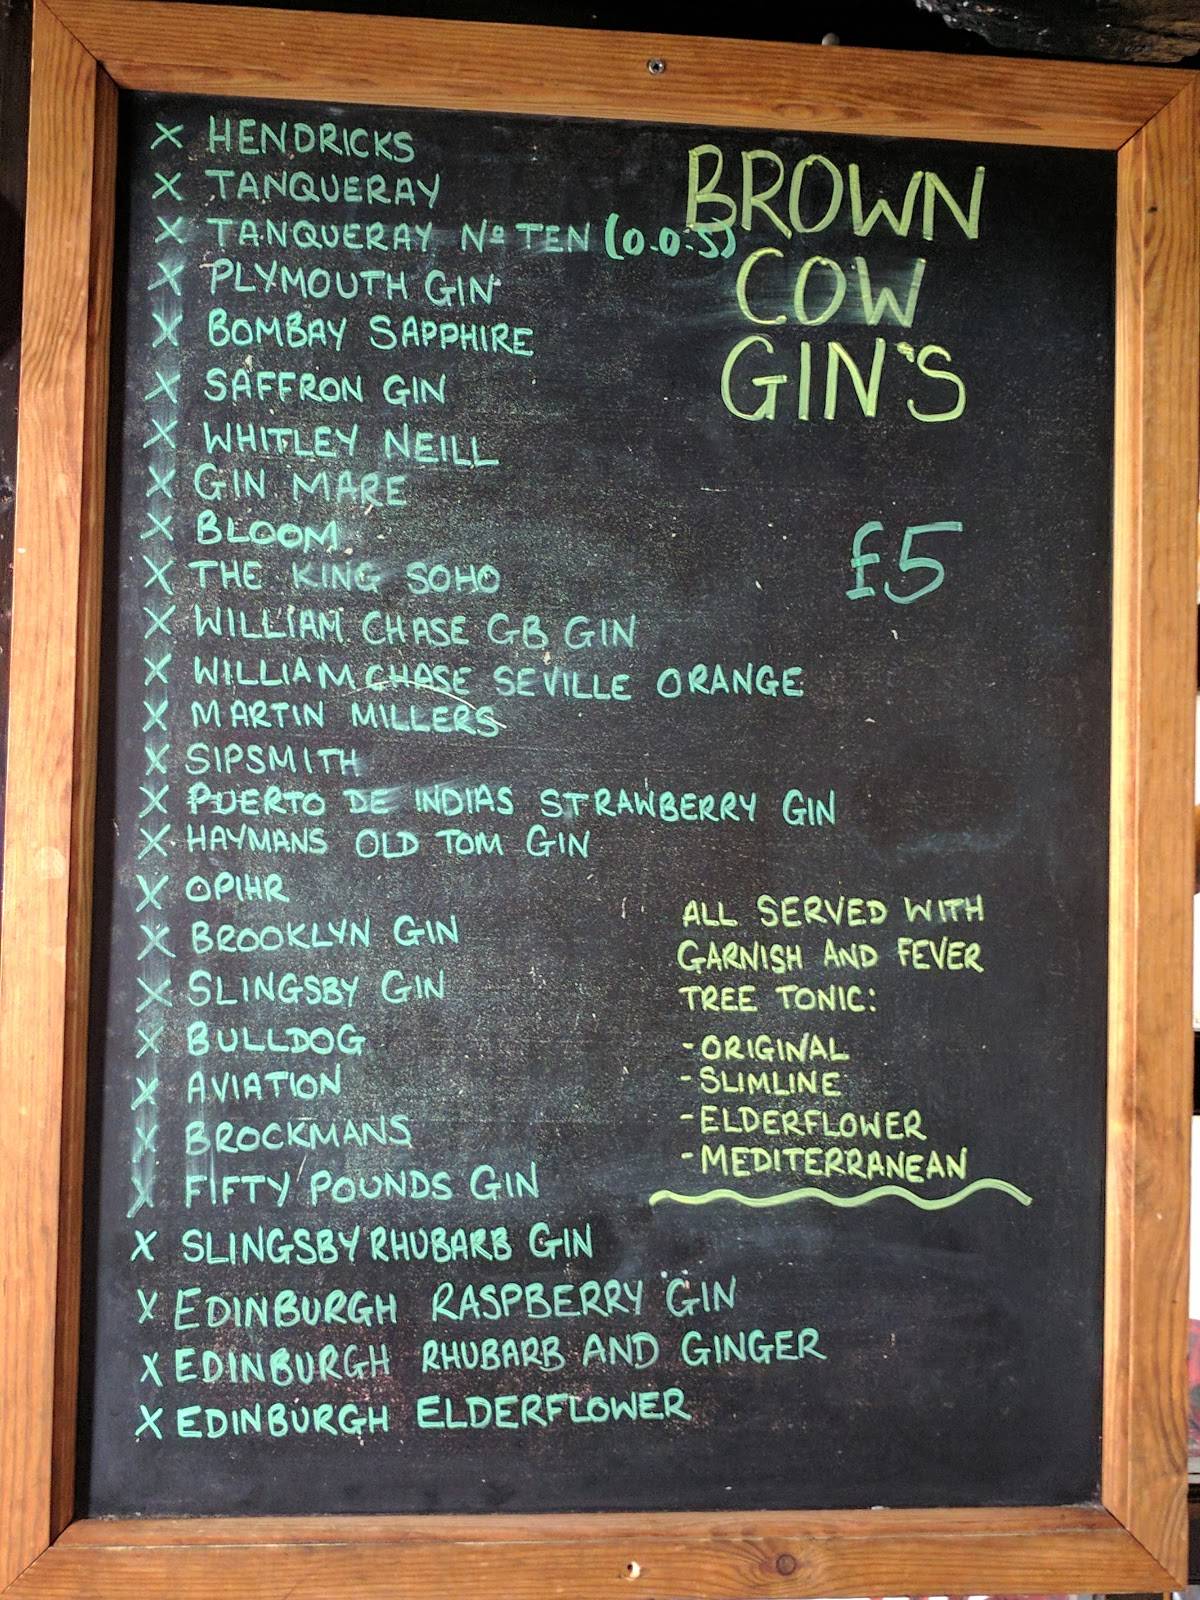 X HENDRICKS
X TANQUERAY
X TANQUERAY Nº TEN (O.O.S)
X PLYMOUTH GIN
X BOMBAY SAPPHIRE
X SAFFRON GIN
X WHITLEY NEILL
X GIN MARE
X BLOOM
X THE KING SOHO
X WILLIAM CHASE GB GIN
X WILLIAM CHASE SEVILLE ORANGE
X MARTIN MILLERS
X SIPSMITH
X PUERTO DE INDIAS STRAWBERRY GIN
X HAYMANS OLD TOM GIN
X OPIHR
X BROOKLYN GIN
X SLINGSBY GIN
X BULLDOG
X AVIATION
X BROCKMANS
X FIFTY POUNDS GIN
X SLINGSBY RHUBARB GIN
X EDINBURGH RASPBERRY GIN
X EDINBURGH RHUBARB AND GINGER
X EDINBURGH ELDERFLOWER
BROWN
COW
GIN'S
£5
ALL SERVED WITH
GARNISH AND FEVER
TREE TONIC:
- ORIGINAL
- SLIMLINE
- ELDERFLOWER
- MEDITERRANEAN